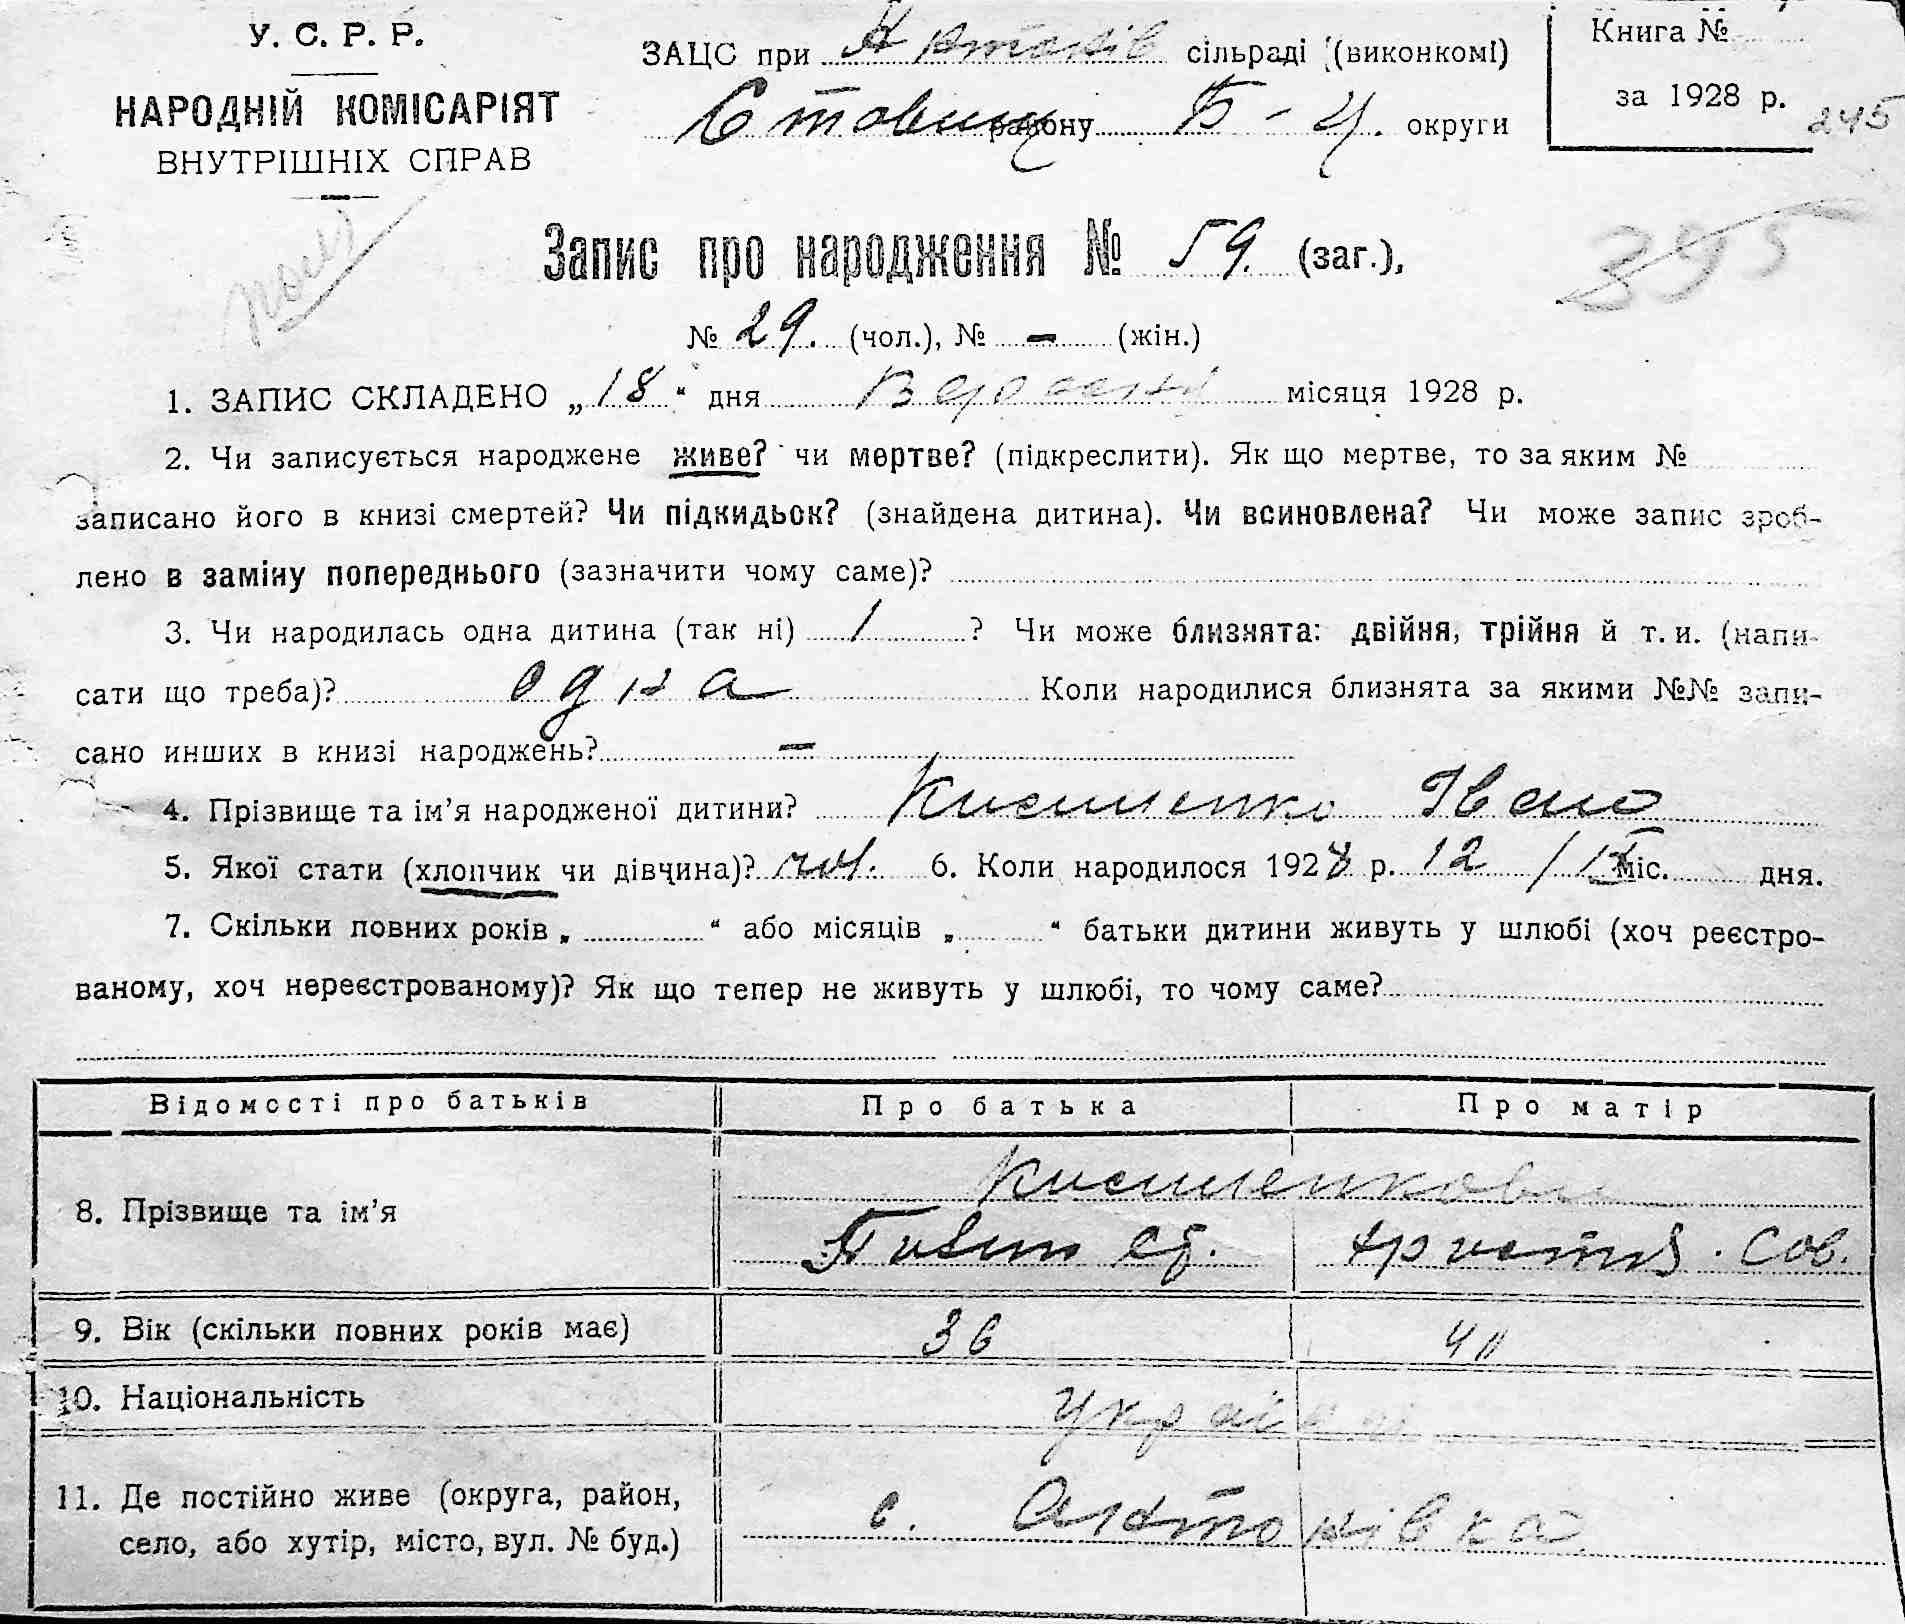 У. С. Р. Р.
НАРОДНІЙ КОМІСАРІЯТ
ВНУТРІШНІХ СПРАВ
ЗАЦС при Антонів сільраді (виконкомі)
Ставищ району Б - Ц. округи
Книга №
за 1928 р.
245
395
Запис про народження № 59. (заг.),
№ 29. (чол.), № – (жін.)
1. ЗАПИС СКЛАДЕНО „18“ дня Вересня місяця 1928 р.
2. Чи записується народжене живе? чи мертве? (підкреслити). Як що мертве, то за яким №
записано його в книзі смертей? Чи підкидьок? (знайдена дитина). Чи всиновлена? Чи може запис зроб-
лено в заміну попереднього (зазначити чому саме)?
3. Чи народилась одна дитина (так ні) 1 ? Чи може близнята: двійня, трійня й т. и. (напи-
сати що треба)? одна Коли народилися близнята за якими №№ запи-
сано инших в книзі народжень? –
4. Прізвище та ім’я народженої дитини? Кисиленко Іван
5. Якої стати (хлопчик чи дівчина)? чол. 6. Коли народилося 1928 р. 12 / ІХ міс. дня.
7. Скільки повних років „ “ або місяців „ “ батьки дитини живуть у шлюбі (хоч реєстро-
ваному, хоч нереєстрованому)? Як що тепер не живуть у шлюбі, то чому саме?
Відомості про батьків Про батька Про матір
8. Прізвище та ім’я Кисиленкови
Пивип Єф. Христия. Сов.
9. Вік (скільки повних років має) 36 40
10. Національність Україн
11. Де постійно живе (округа, район,
село, або хутір, місто, вул. № буд.) с. Антонівка